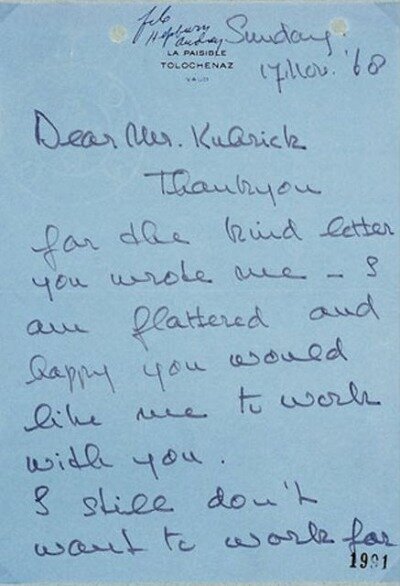 file
Hepburn
Audrey
Sunday
LA PAISIBLE
TOLOCHENAZ
VAUD
17 Nov. '68
Dear Mr. Kubrick
Thankyou
for the kind letter
you wrote me – I
am flattered and
happy you would
like me to work
with you.
I still don't
want to work for
1991